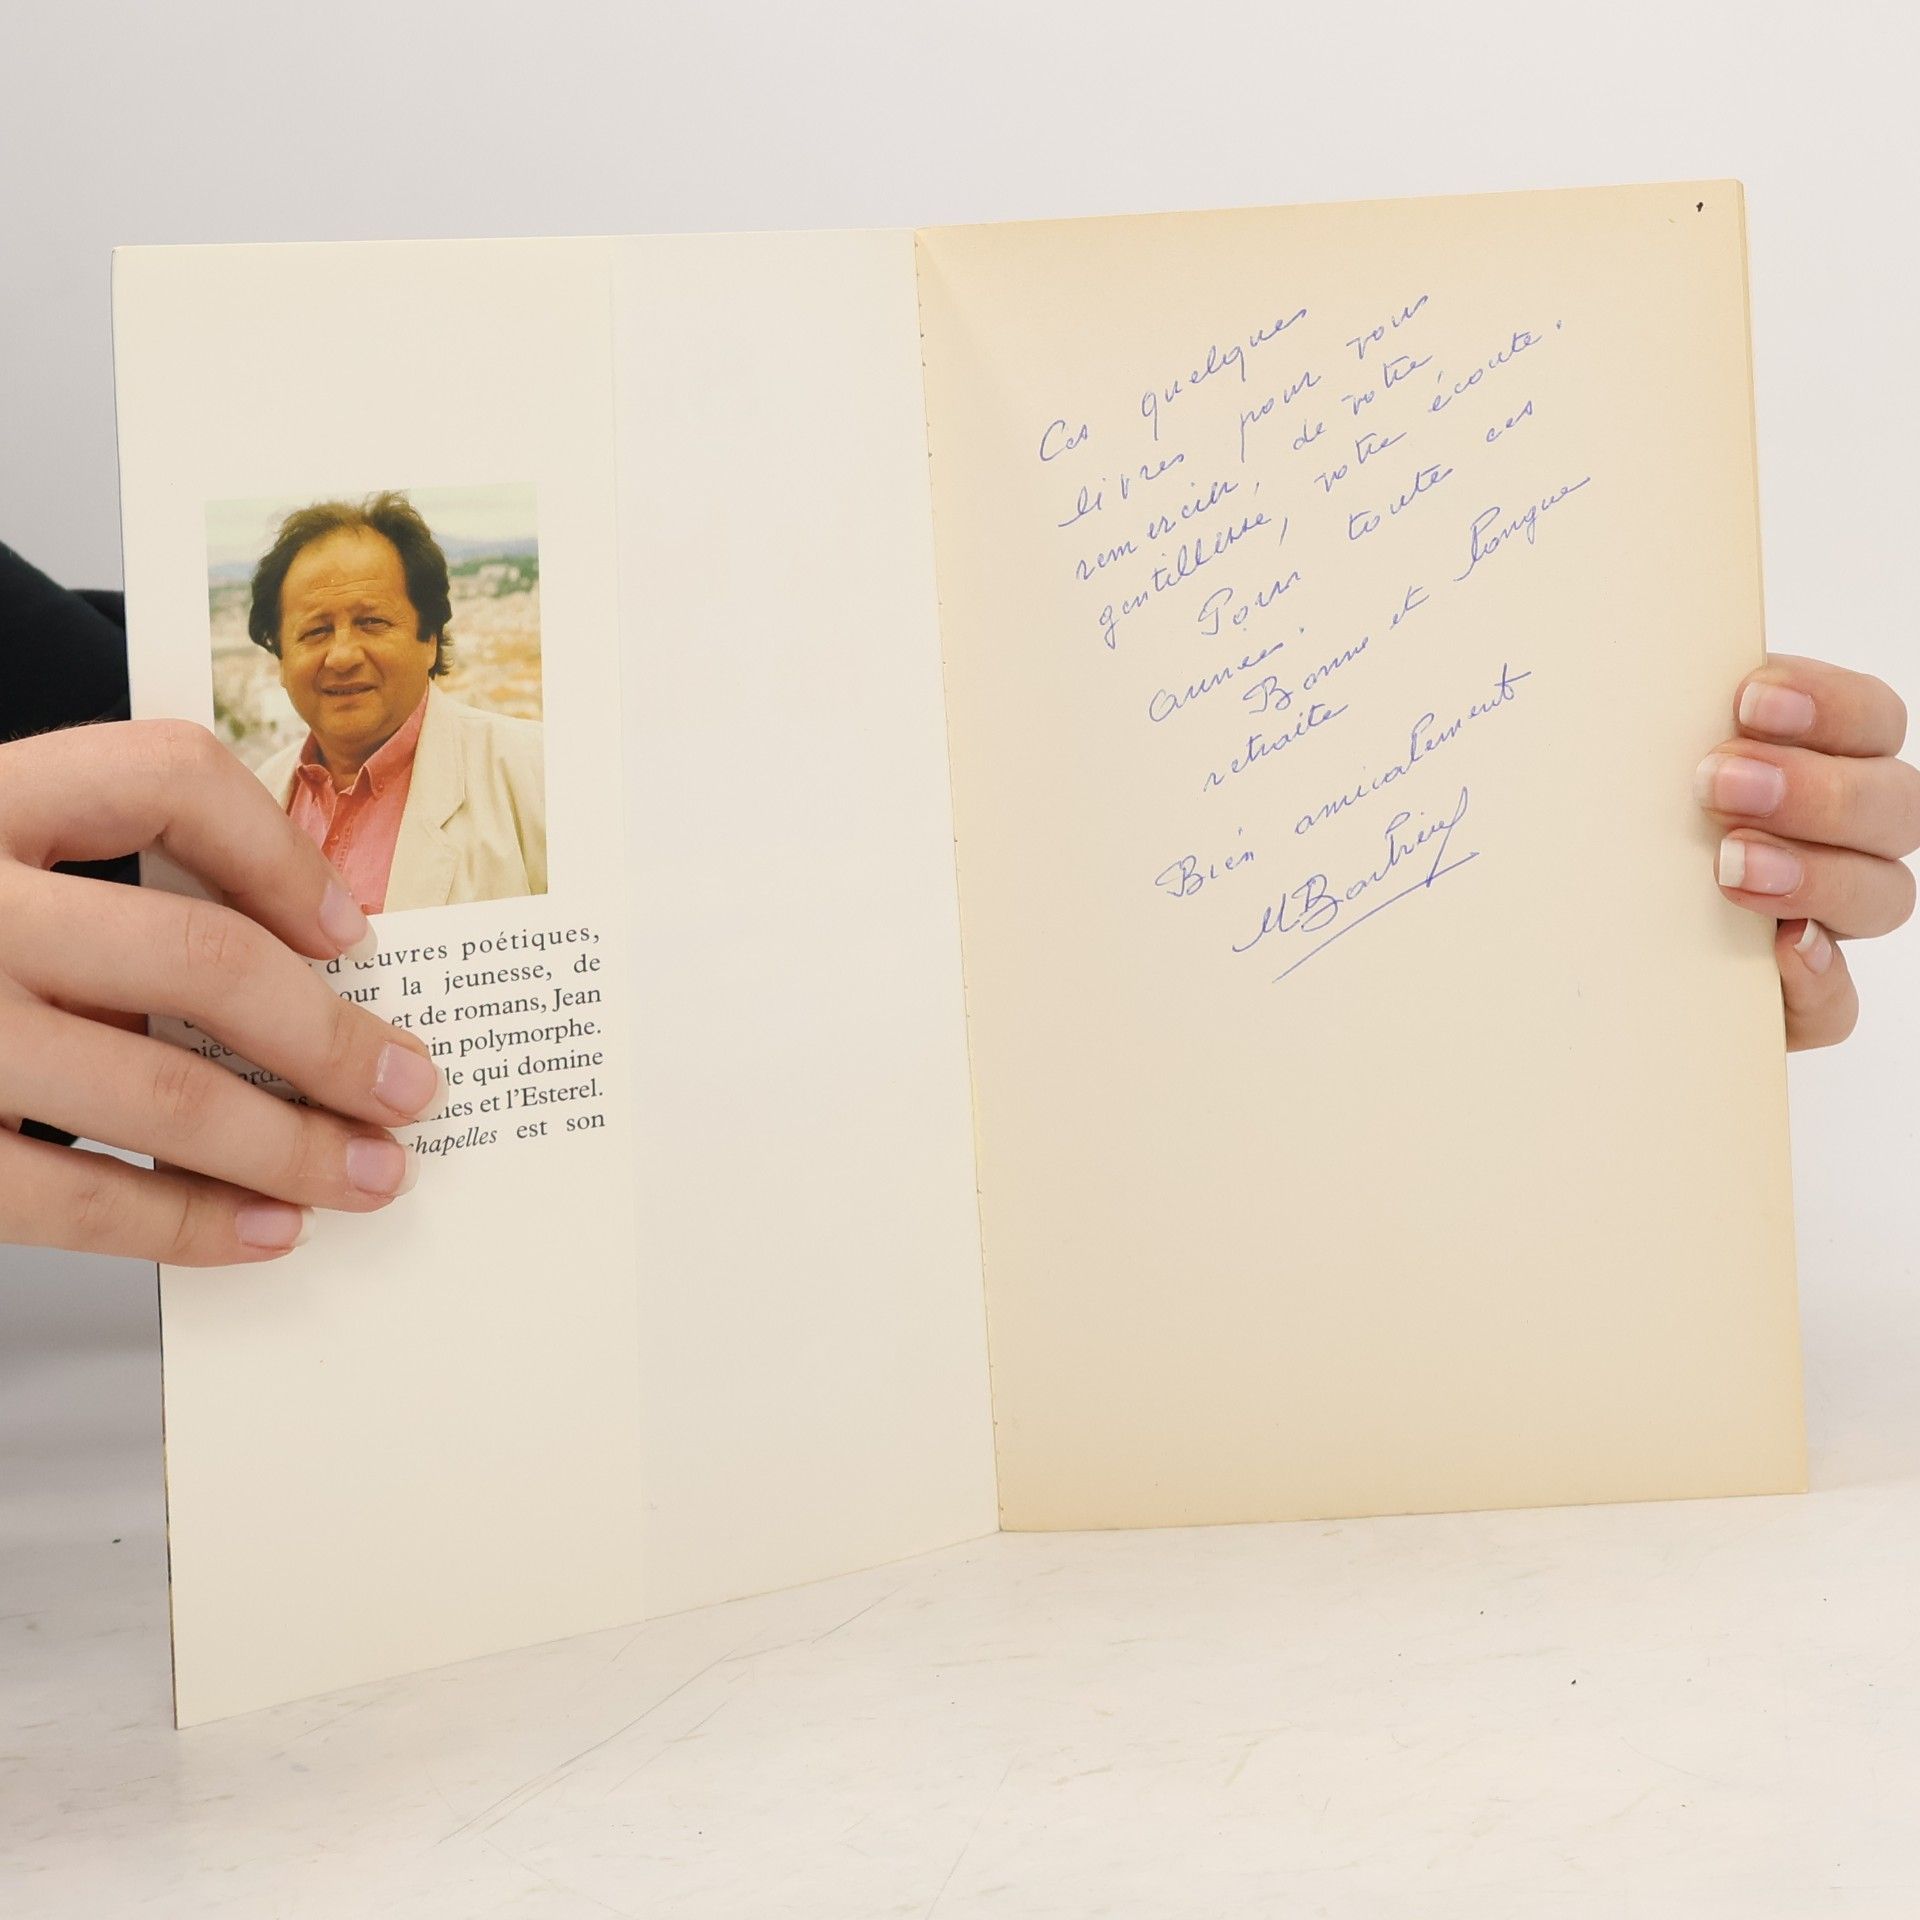 d'œuvres poétiques,
our la jeunesse, de
et de romans, Jean
polymorphe.
qui domine
et l'Esterel.
chapelles est son
Ces quelques
livres pour vous
remercier, de votre
gentillesse, votre écoute.
Pour toute ces
années.
Bonne et longue
retraite
Bien amicalement